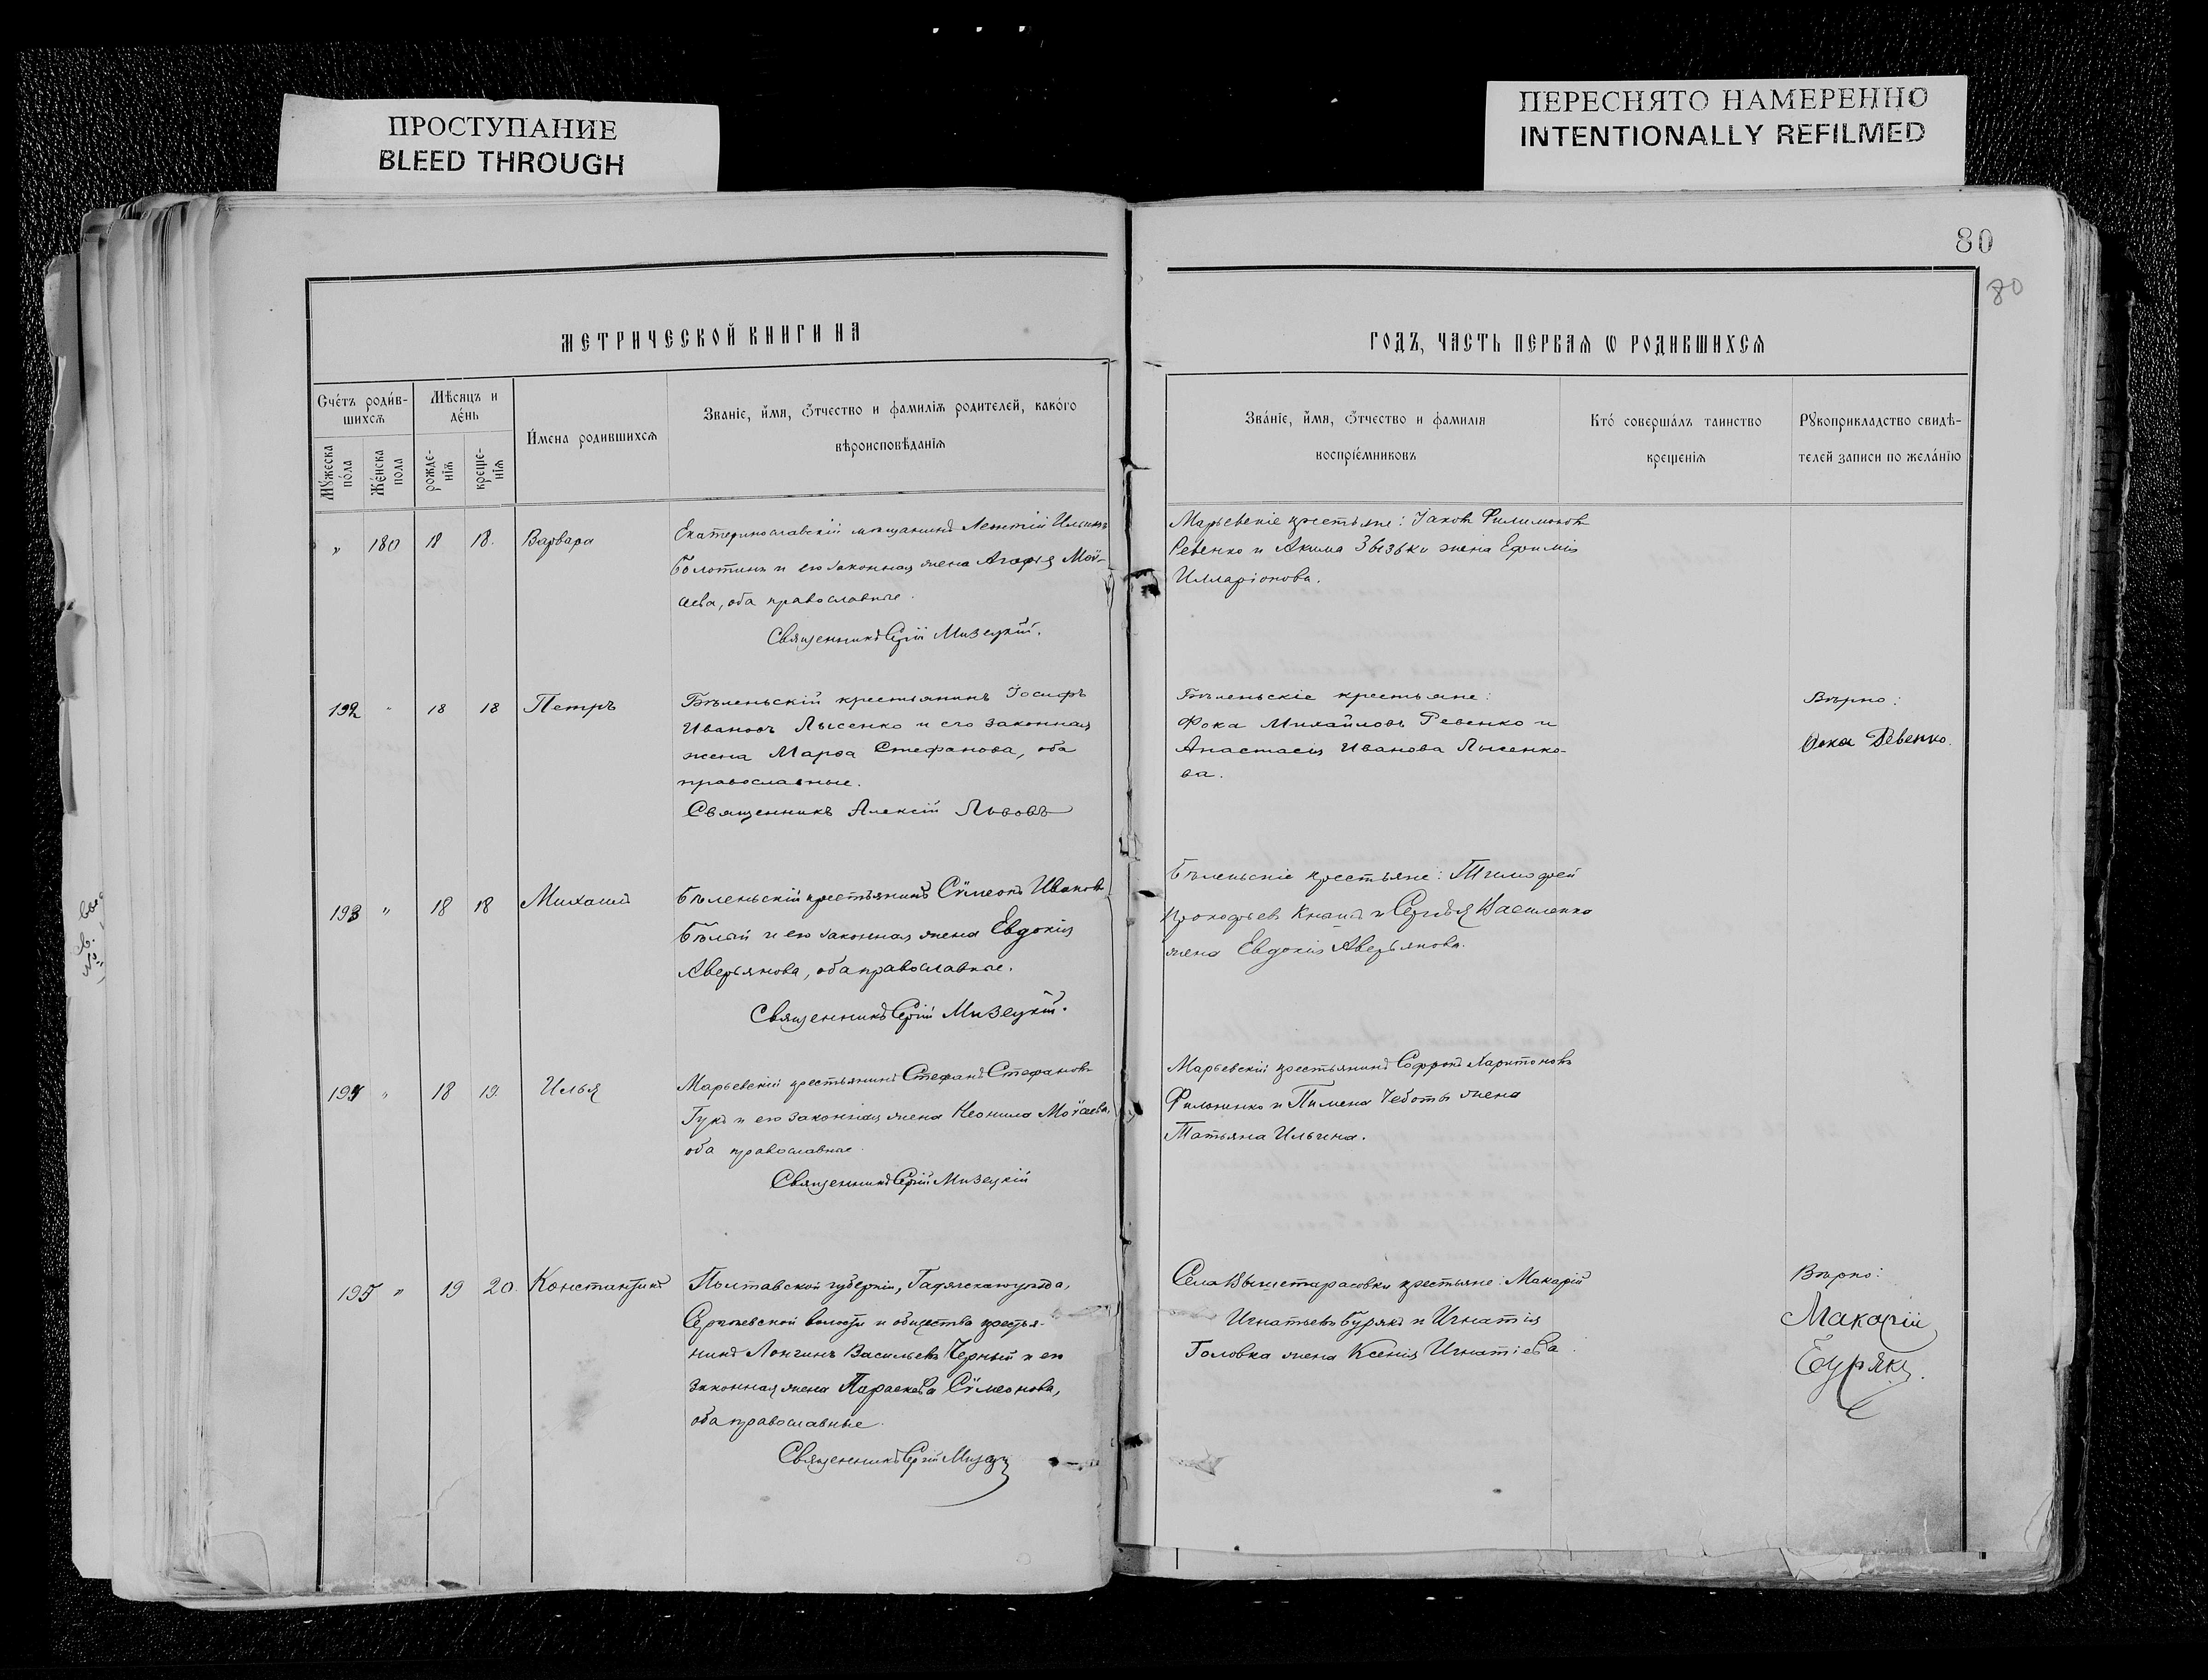 ПРОСТУПАНИЕ
BLEED THROUGH
ПЕРЕСНЯТО НАМЕРЕННО
INTENTIONALLY REFILMED
80
80
МЕТРИЧЕСКОЙ КНИГИ НА
ГОДЪ, ЧАСТЬ ПЕРВАѦ Ѡ РОДИВШИХСѦ
Счéтъ роди́в-
шихсѧ
Мѣсяцъ и
дéнь
И҆́мена родившихсѧ
Званїе, и҆́мя, ѻ҆́тчество и фамилїѧ родителей, какóго
вѣроисповѣ́данїѧ
Мꙋ́жеска
пóла
Жéнска
пола
рожде-
нїѧ
креще-
нїѧ
Звáнїе, и҆́мя, ѻ҆́тчество и фамилїѧ
воспрїе́мниковъ
Ктó совершáлъ таинство
крещенїѧ
Рꙋкоприкладство свидѣ-
телей записи по желáнїю
" 180 18 18. Варвара
Екатеринославскій мѣщанинъ Леонтій Ильинъ
Болотинъ и его законная жена Агафія Моѵ-
сеева, оба православные.
Священникъ Сергій Мизецкій.
Марьевскіе крестьяне: Іаковъ Филимоновъ
Ревенко и Акима Звѣзьки жена Ефимія
Илларіонова.
192 " 18 18 Петръ
Бѣленьскій крестьянинъ Іосифъ
Ивановъ Лысенко и его законная
жена Марѳа Стефанова, оба
православные.
Священникъ Алексій Львовъ
Бѣленьскіе крестьяне:
Фока Михайловъ Ревенко и
Анастасія Иванова Лысенко-
ва.
Вѣрно:
Фока Ревенко.
193 " 18 18 Михаилъ
Бѣленьскій крестьянинъ Сѵмеонъ Ивановъ
Бѣлый и его законная жена Евдокія
Аверьянова, оба православные.
Священникъ Сергій Мизецкій.
Бѣленьскіе крестьяне: Тимофей
Прокофьевъ Кнашъ и Сергѣя Василенка
жена Евдокія Аверьянова.
194 " 18 19. Илья
Марьевскій крестьянинъ Стефанъ Стефановъ
Гукъ и его законная жена Неонила Моѵсеева,
оба православные.
Священникъ Сергій Мизецкій
Марьевскій крестьянинъ Софронъ Харитоновъ
Филоненко и Пимена Чеботы жена
Татьяна Ильина.
195 " 19 20. Константинъ
Полтавской губерніи, Гадячскаго уѣзда,
Сергіевской волости и общества крестья-
нинъ Лонгинъ Васильевъ Черный и его
законная жена Параскева Сѵмеонова,
оба православные.
Священникъ Сергій Мизецкій
Села Вышетарасовки крестьяне: Макарій
Игнатьевъ Бурякъ и Игнатія
Головка жена Ксенія Игнатіева.
Вѣрно:
Макарій
Бурякъ.